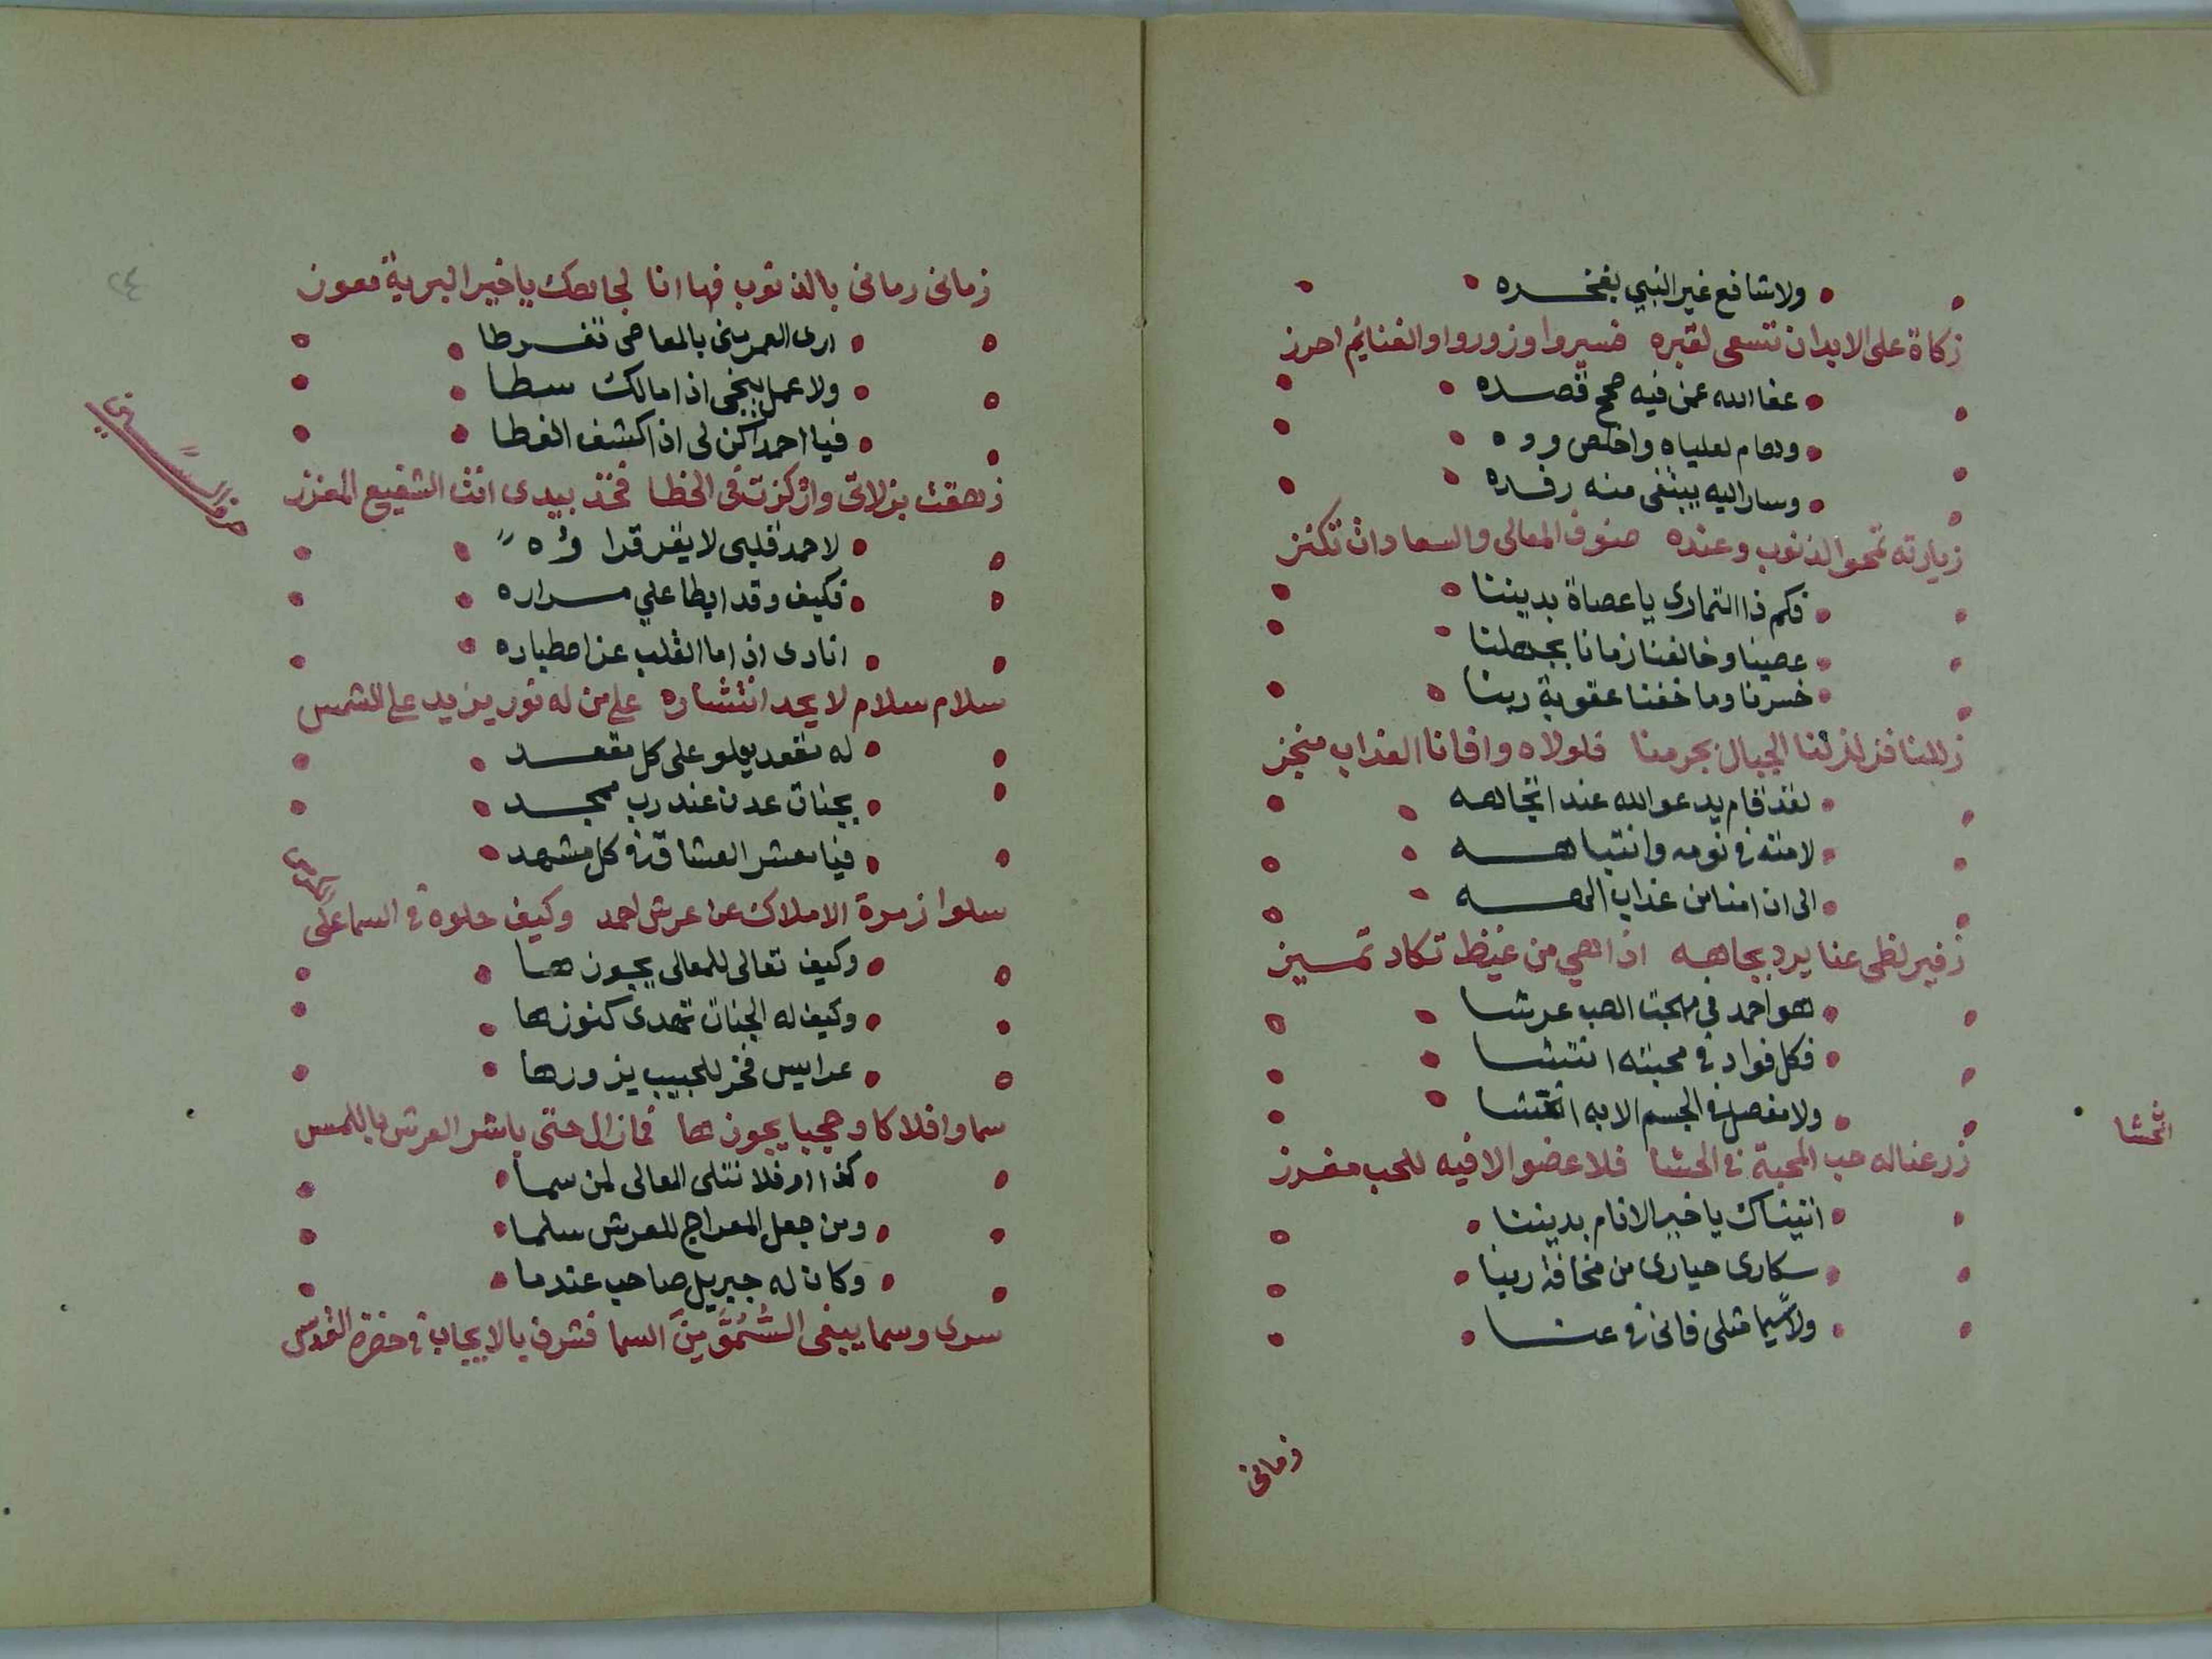 ولا شافع غير النبي بفخره
زكاة على الابدان تسعى لقبره فسيروا وزوروا والغنايم احرز
عفا الله عمن فيه صحح قصده
وهام لعلياه واخلص وده
وسار اليه يبتغي منه رفده
زيارته تمحو الذنوب وعنده صنوف المعالي والسعادات تكنز
فكم ذا التمادى يا عصاة بديننا
عصينا وخالفنا زمانا بجهلنا
خسرنا وما خفنا عقوبة ربنا
زللنا فزلزلنا الجبال بجرمنا فلولاه وافانا العذاب منجز
لقد قام يدعو الله عند اتجاهه
لامته في نومه وانتباهه
الى ان امنا من عذاب الهه
زفير لظى عنا يرد بجاهه اذا هي من غيظ تكاد تميز
هو احمد في مهجت الصب عرشا
فكل فواد في محبته انتشا
ولا مفصل في الجسم الا به اختشا
انحشا
زرعنا له حب المحبة في الحشا فلا عضو الا فيه للحب مغرز
اتيناك يا خير الانام بديننا
سكارى حيارى من مخافة ربنا
ولا سيما مثلي فاني في عنا
زماني
٢٤
زماني رماني بالذنوب فها انا لجاهك يا خير البرية معوز
ارى العمر مني بالمعاصي تفرطا
ولا عمل ينجي اذا مالك سطا
فيا احمدا كن لي اذا كشف الغطا
زهقت بزلاتي واركزت في الخطا فخذ بيدي انت الشفيع المعزز
حرف السين
لاحمد قلبي لا يفر قرا ره
فكيف وقد ابطا علي مزاره
انادى اذا ما القلب عز اصطباره
سلام سلام لا يحد انتشاره على من له نور يزيد على الشمس
له مقعد يعلو على كل مقعد
بجنات عدن عند رب ممجد
فيا معشر العشاق في كل مشهد
سلوا زمرة الاملاك عن عرش احمد وكيف جلوه في السما على الكرسي
وكيف تعالى للمعالي يجوزها
وكيف له الجنات تهدى كنوزها
عرايس فخر للحبيب يزورها
سما وافلاكا وحجبا يجوزها فما زال حتى باشر العرش باللمس
كذا والا فلا تتلى المعالي لمن سما
ومن جعل المعراج للعرش سلما
وكان له جبريل صاحب عندما
سرى وسما يبغى السمو من السما فشرف بالايجاب في حضرة القدس